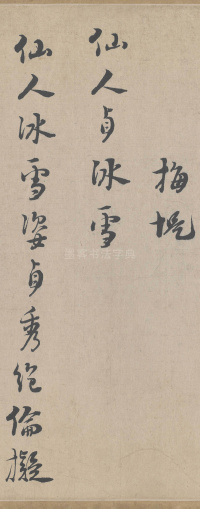 梅堤
仙人貞冰雪
仙人冰雪姿貞秀絕倫擬